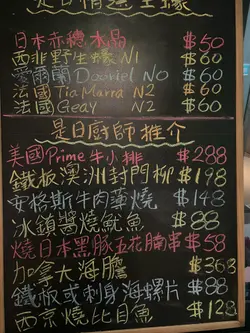 是日精選生蠔
日本赤穗水晶 $50
西非野生蠔 N1 $60
愛爾蘭 Dooriel N0 $60
法國 Tia Marra N2 $60
法國 Geay N2 $60
是日廚師推介
美國Prime牛小排 $288
鐵板澳洲封門柳 $198
安格斯牛肉葦燒 $148
冰鎮醬燒魷魚 $88
燒日本黑豚五花腩串 $58
加拿大海膽 $368
鐵板或刺身海螺片 $88
西京燒比目魚 $128